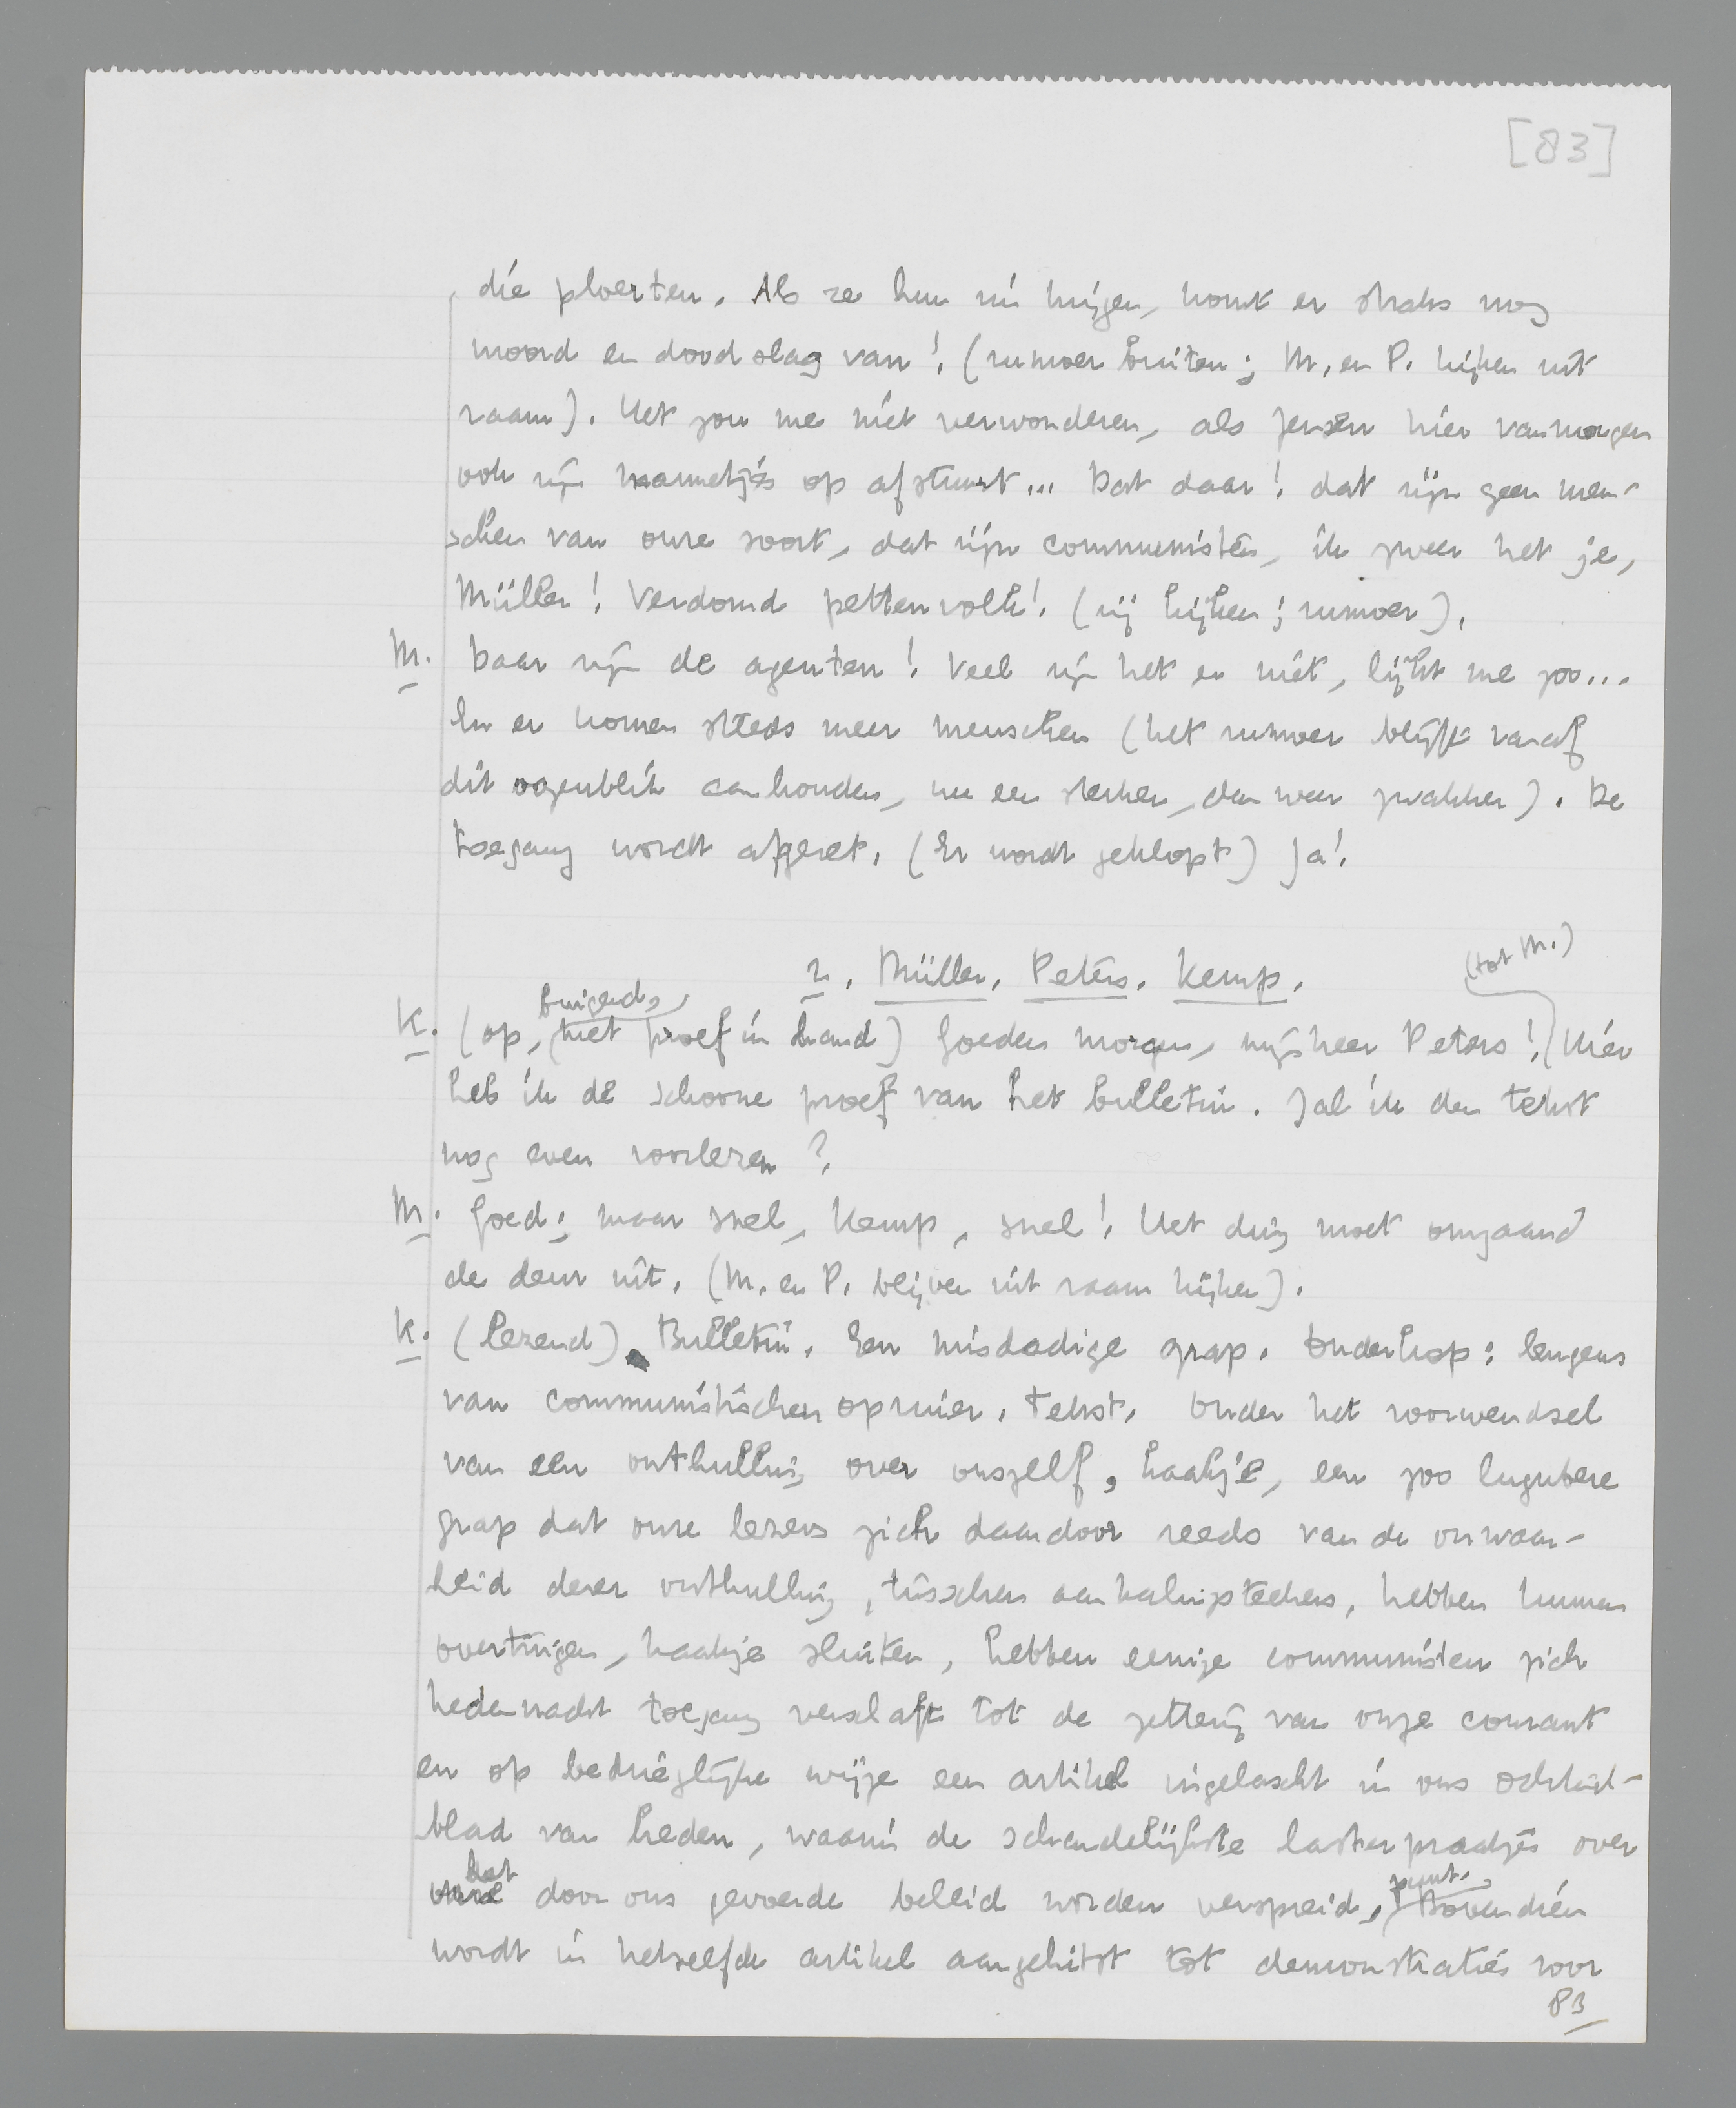 [83]
die ploerten. Als ze hun zin krijgen, komt er straks nog
moord en doodslag van! (rumoer buiten; M. en P. kijken uit
raam). Het zou me niet verwonderen, als Jensen hier vanmorgen
ook zijn mannetjes op afstuurt... Dat daar! dat zijn geen men-
schen van onze soort, dat zijn communisten, ik zweer het je,
Müller! Verdomd pettenvolk! (zij kijken; rumoer).
M. Daar zijn de agenten! Veel zijn het er niet, lijkt me zoo...
En er komen steeds meer menschen (het rumoer blijft vanaf
dit oogenblik aanhouden, nu een sterker, dan weer zwakker). De
toegang wordt afgezet. (Er wordt geklopt) Ja!
2. Müller. Peters. Kemp.
K. (op, buigend, met proef in hand) Goeden morgen, mijnheer Peters! (tot M.) Hier
heb ik de schoone proef van het bulletin. Zal ik den tekst
nog even voorlezen?
M. Goed; maar snel, Kemp, snel! Het ding moet omgaand
de deur uit. (M. en P. blijven uit raam kijken).
K. (lezend) Bulletin. Een misdadige grap. Onderkop: leugens
van communistischen oproeier. Tekst. Onder het voorwendsel
van een onthulling over onszelf, haakje, een zoo lugubere
grap dat onze lezers zich daardoor reeds van de onwaar-
heid dezer onthulling, tusschen aanhalingsteekens, hebben kunnen
overtuigen, haakje sluiten, hebben eenige communisten zich
hedennacht toegang verschaft tot de zetterij van onze courant
en op bedriegelijke wijze een artikel ingelascht in ons ochtend-
blad van heden, waarin de schandelijkste lasterpraatjes over
het door ons gevoerde beleid worden verspreid, punt. Bovendien
wordt in hetzelfde artikel aangehitst tot demonstraties voor
83